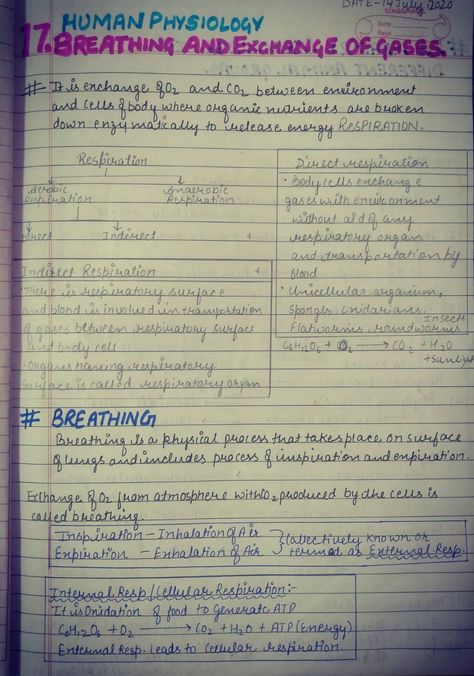 DATE-14July,2020
HUMAN PHYSIOLOGY
Date
Page
17. BREATHING AND EXCHANGE OF GASES.
# It is exchange of O2 and CO2 between environment
and cells of body where organic nutrients are broken
down enzymatically to release energy RESPIRATION.
Respiration
Aerobic Respiration
Anaerobic Respiration
Direct
Indirect
Direct respiration
• Body cells exchange
gases with environment
without aid of any
respiratory organ
and transportation by
blood
• Unicellular organism,
sponges, cnidarians, Insects
flatworms, roundworms
C6H12O6 + O2 → CO2 + H2O
+ Sunlight
Indirect Respiration
• There is respiratory surface
and blood is involved in transportation
of gases between respiratory surface
and body cell
• Organs having respiratory
surface is called respiratory organ
# BREATHING
Breathing is a physical process that takes place on surface
of lungs and includes process of inspiration and expiration.
Exchange of O2 from atmosphere with CO2 produced by the cells is
called breathing.
Inspiration - Inhalation of Air
Expiration - Exhalation of Air
Collectively known or
termed as External Resp.
Internal Resp/Cellular Respiration:-
It is Oxidation of food to Generate ATP
C6H12O6 + O2 → CO2 + H2O + ATP (Energy)
External Resp. leads to Cellular respiration.